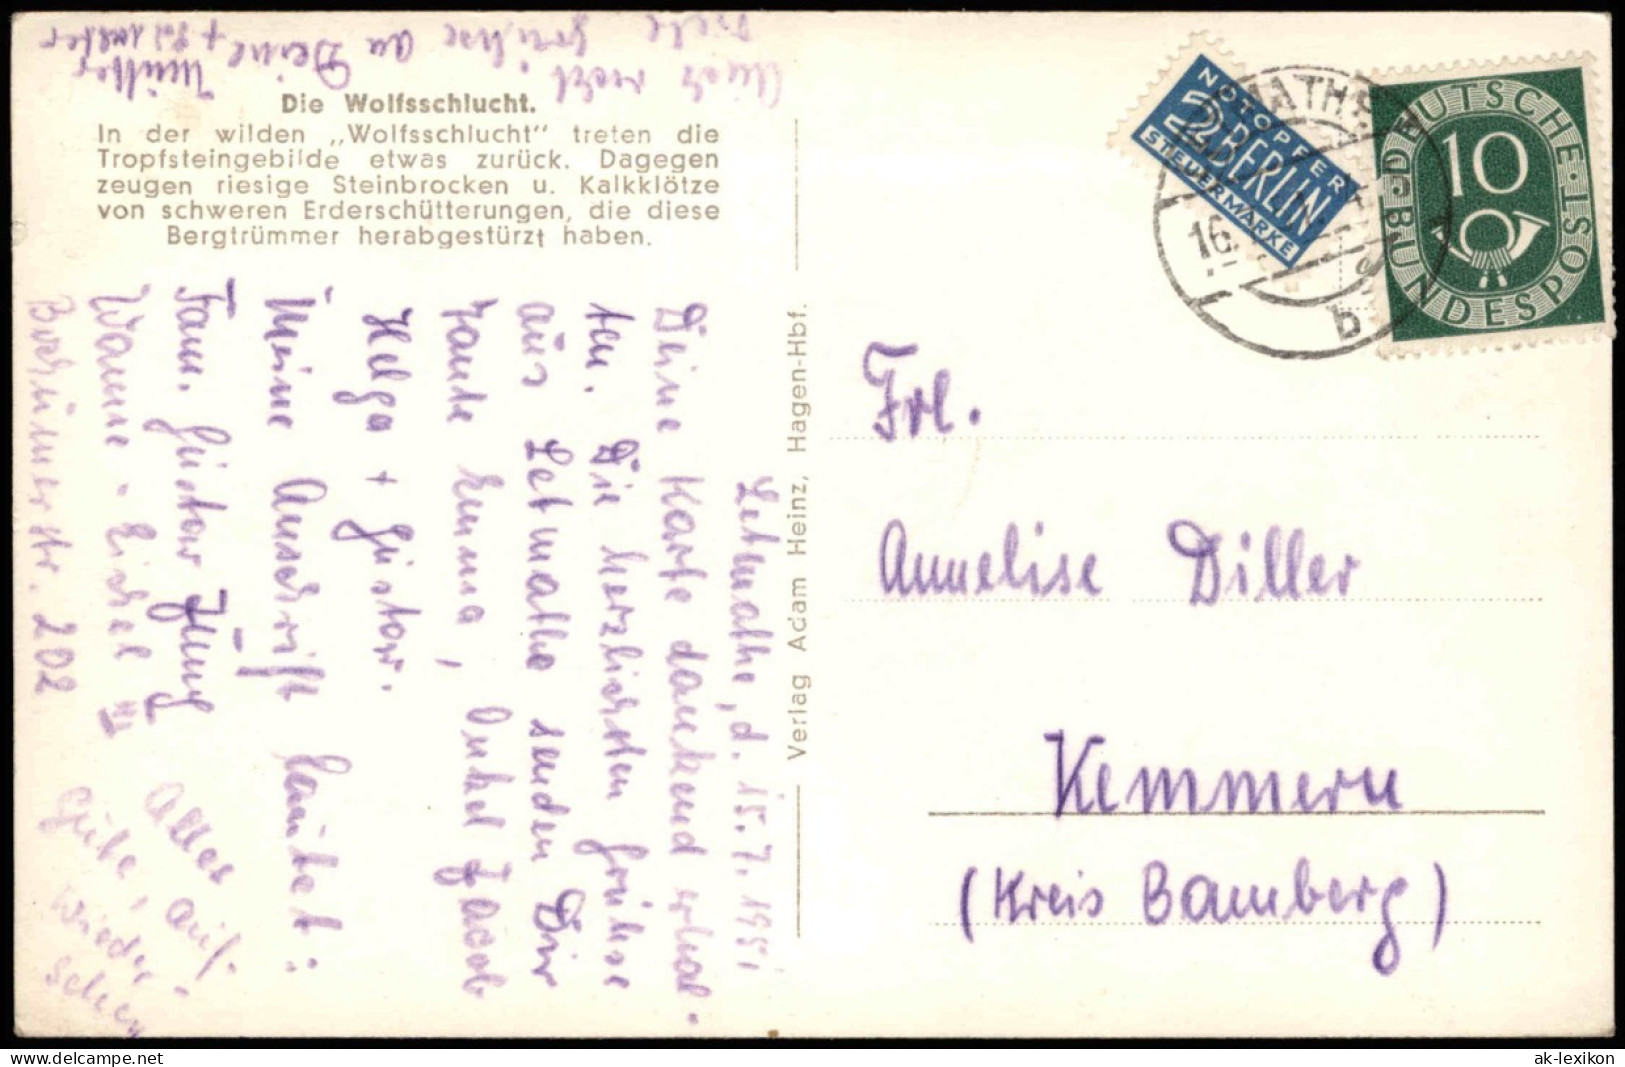 Die Wolfsschlucht.
In der wilden „Wolfsschlucht“ treten die
Tropfsteingebilde etwas zurück. Dagegen
zeugen riesige Steinbrocken u. Kalkklötze
von schweren Erderschütterungen, die diese
Bergtrümmer herabgestürzt haben.
Letmathe, d. 15.7.1951
Deine Karte dankend erhal-
ten. Die herzlichsten Grühse
aus Letmathe senden Dir
Tante Emma, Onkel Jacob
Helga + Gustav.
Meine Anschrift lautet:
Fam. Gustav Jung
Wanne-Eickel III
Bochümerstr. 202
Alles
Gute, auf
Wieder-
sehen
Auch recht
viele Grühse an Deine
Mütter +
Verlag Adam Heinz, Hagen-Hbf.
NOTOPFER
2 BERLIN
STEUERMARKE
MATHE
16.
b
DEUTSCHE BUNDESPOST
10
Frl.
Annelise Diller
Kemmern
(Kreis Bamberg)
delcampe.net
ak-lexikon